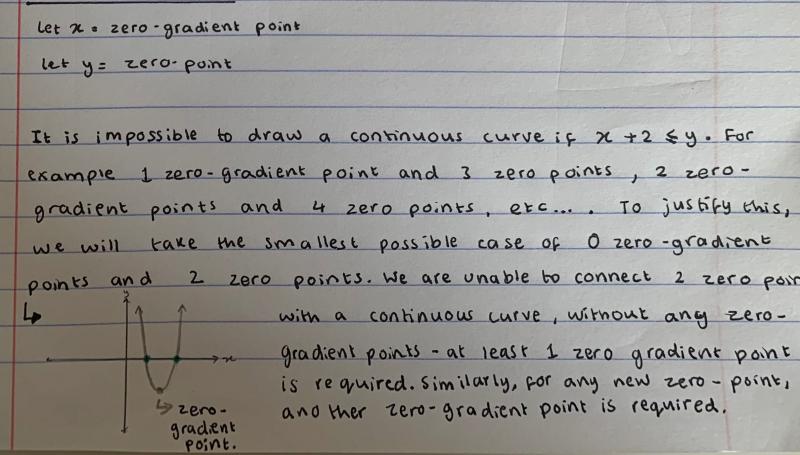 Let x = zero-gradient point
let y = zero-point
It is impossible to draw a continuous curve if x + 2 ≤ y. For
example 1 zero-gradient point and 3 zero points, 2 zero-
gradient points and 4 zero points, etc.... To justify this,
we will take the smallest possible case of 0 zero-gradient
points and 2 zero points. We are unable to connect 2 zero poin
with a continuous curve, without any zero-
gradient points - at least 1 zero gradient point
is required. Similarly, for any new zero-point,
another zero-gradient point is required.
x
zero-
gradient
point.